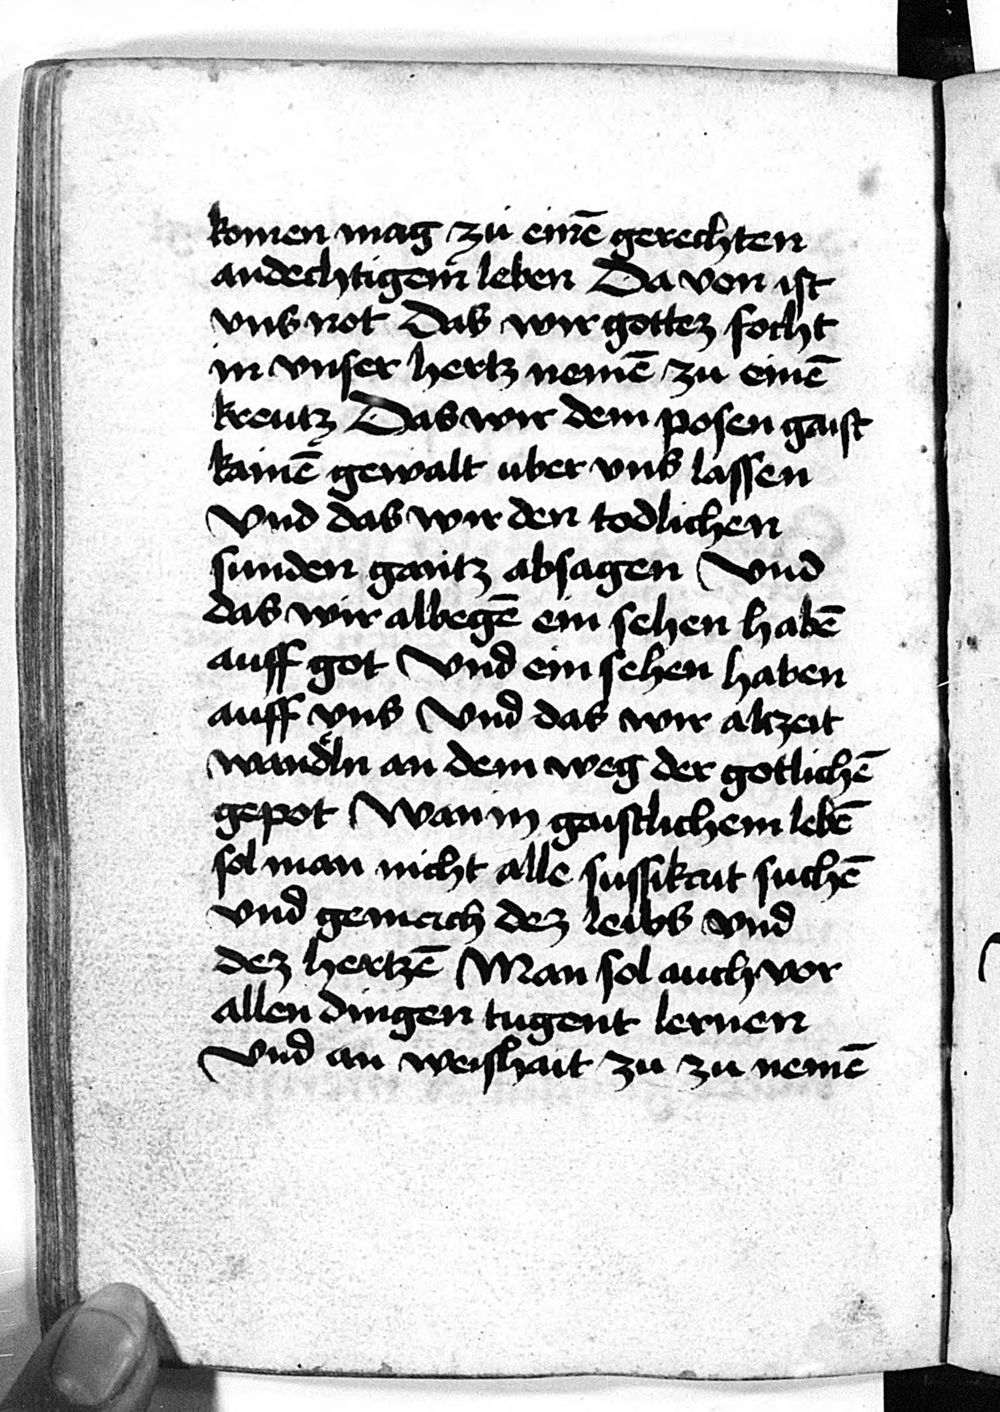 komen mag zu einē gerechten
andechtigem leben Da von ist
vns not Das wir gottez focht
in vnser hertz nemē zu einē
kreutz Das wir dem posen gaist
kainē gewalt uber vns lassen
Vnd das wir den todlichen
sunden gantz absagen Vnd
das wir albegē ein sehen habē
auff got Vnd ein sehen haben
auff vns Vnd das wir alczeit
wandeln an dem weg der gotlichē
gepot Wan in gaistlichem lebē
sol man nicht alle sussikait suchē
vnd gemach dez leibs vnd
dez hertzē Man sol auch vor
allen dingen tugent lernen
Vnd an weishait zu zu nemē